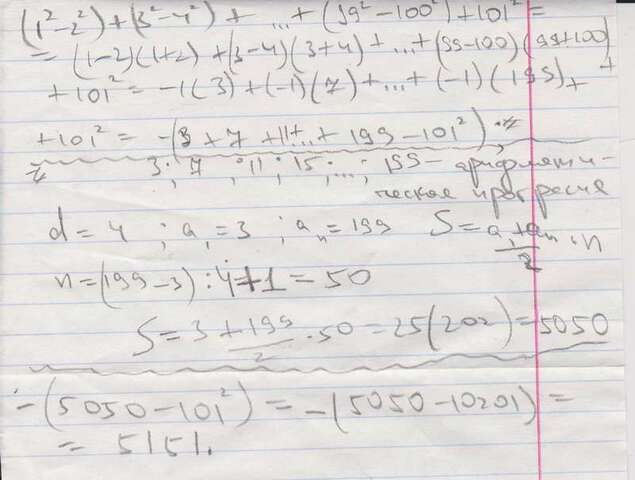 (1²-2²)+(3²-4²)+...+(99²-100²)+101²=
=(1-2)(1+2)+(3-4)(3+4)+...+(99-100)(99+100)+
+101²=-1(3)+(-1)(7)+...+(-1)(199)+
+101²=-(3+7+11+...+199-101²)
3; 7; 11; 15; ...; 199 - арифмети-
ческая прогресия
d=4 ; a₁=3 ; aₙ=199 S=(a₁+aₙ)/2·n
n=(199-3):4+1=50
S=3+199/2·50=25(202)=5050
-(5050-101²)=-(5050-10201)=
=5151.